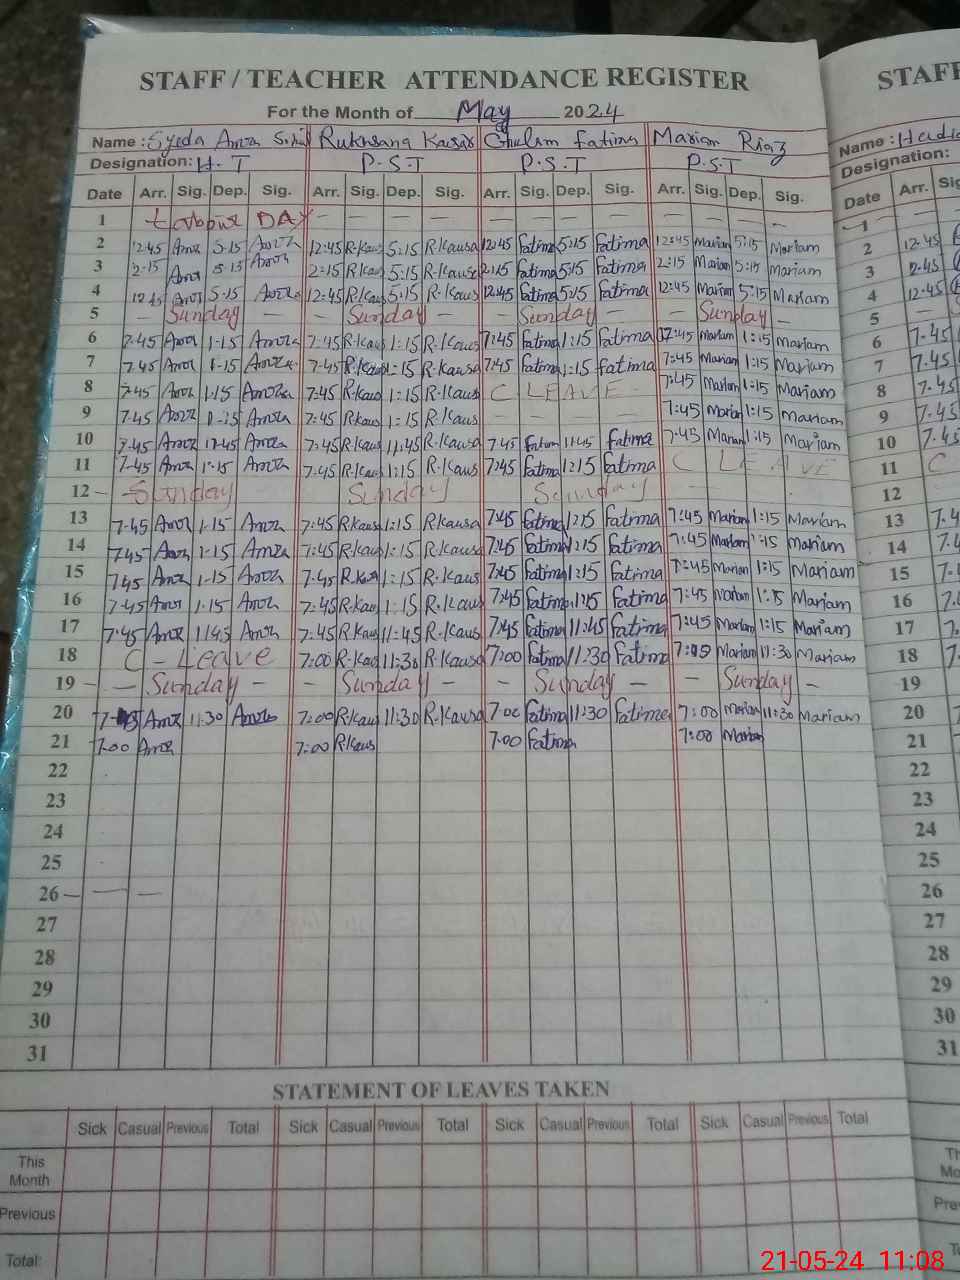 STAFF / TEACHER ATTENDANCE REGISTER STAFF
For the Month of May 2024
Name : Syeda Rukhsana Kausar Ghulam Fatima Mariam Riaz Name :
Designation: H-T P.S.T P.S.T P.S.T Designation:
Date Arr. Sig. Dep. Sig. Arr. Sig. Dep. Sig. Arr. Sig. Dep. Sig. Arr. Sig. Dep. Sig. Date Arr.
1 DAY — — — — — — — — — — — — 1
2 12:45 5-15 12:45 R.Kaus 5:15 R.Kausa 12:45 Fatima 5:15 Fatima 12:45 Mariam 5:15 Mariam 2 12-45
3 2-15 5-15 2:15 R.Kaus 5:15 R.Kausa 2:15 Fatima 5:15 Fatima 2:15 Mariam 5:15 Mariam 3 2-45
4 12-45 5-15 12:45 R.Kaus 5:15 R.Kausa 12:45 Fatima 5:15 Fatima 12:45 Mariam 5:15 Mariam 4 12-45
5 — Sunday — — Sunday — — Sunday — — Sunday — 5
6 7-45 1-15 7:45 R.Kaus 1:15 R.Kausa 7:45 Fatima 1:15 Fatima 12:45 Mariam 1:15 Mariam 6 7-45
7 7.45 1-15 7-45 R.Kaus 1:15 R.Kausa 7:45 Fatima 1:15 Fatima 7:45 Mariam 1:15 Mariam 7 7-45
8 7-45 1-15 7:45 R.Kaus 1:15 R.Kausa C LEAVE 7:45 Mariam 1:15 Mariam 8 7-45
9 7-45 1-15 7:45 R.Kaus 1:15 R.Kausa — — — — 7:45 Mariam 1:15 Mariam 9 7-45
10 7-45 7:45 R.Kaus 11:45 R.Kausa 7:45 Fatima 11:45 Fatima 7:45 Mariam 1:15 Mariam 10 7-45
11 7-45 1-15 7:45 R.Kaus 1:15 R.Kausa 7:45 Fatima 1:15 Fatima C LEAVE 11 C
12 — Sunday Sunday Sunday 12
13 7-45 1-15 7:45 R.Kaus 1:15 R.Kausa 7:45 Fatima 1:15 Fatima 7:45 Mariam 1:15 Mariam 13
14 7-45 1-15 7:45 R.Kaus 1:15 R.Kausa 7:45 Fatima 1:15 Fatima 7:45 Mariam 1:15 Mariam 14
15 7-45 1-15 7:45 R.Kaus 1:15 R.Kausa 7:45 Fatima 1:15 Fatima 7:45 Mariam 1:15 Mariam 15
16 7-45 1-15 7:45 R.Kaus 1:15 R.Kausa 7:45 Fatima 1:15 Fatima 7:45 Mariam 1:15 Mariam 16
17 7-45 1145 7:45 R.Kaus 11:45 R.Kausa 7:45 Fatima 11:45 Fatima 7:45 Mariam 1:15 Mariam 17
18 C - Leave 7:00 R.Kaus 11:30 R.Kausa 7:00 Fatima 11:30 Fatima Mariam 11:30 Mariam 18
19 — — Sunday — — Sunday — — Sunday — — Sunday — 19
20 11:30 7:00 R.Kaus 11:30 R.Kausa 7:00 Fatima 11:30 Fatima 7:00 Mariam 11:30 Mariam 20
21 7.00 7:00 R.Kaus 7:00 Fatima 7:00 Mariam 21
22 22
23 23
24 24
25 25
26 — — — 26
27 27
28 28
29 29
30 30
31 31
STATEMENT OF LEAVES TAKEN
Sick Casual Previous Total Sick Casual Previous Total Sick Casual Previous Total Sick Casual Previous Total
This Month
Previous
Total:
21-05-24 11:08